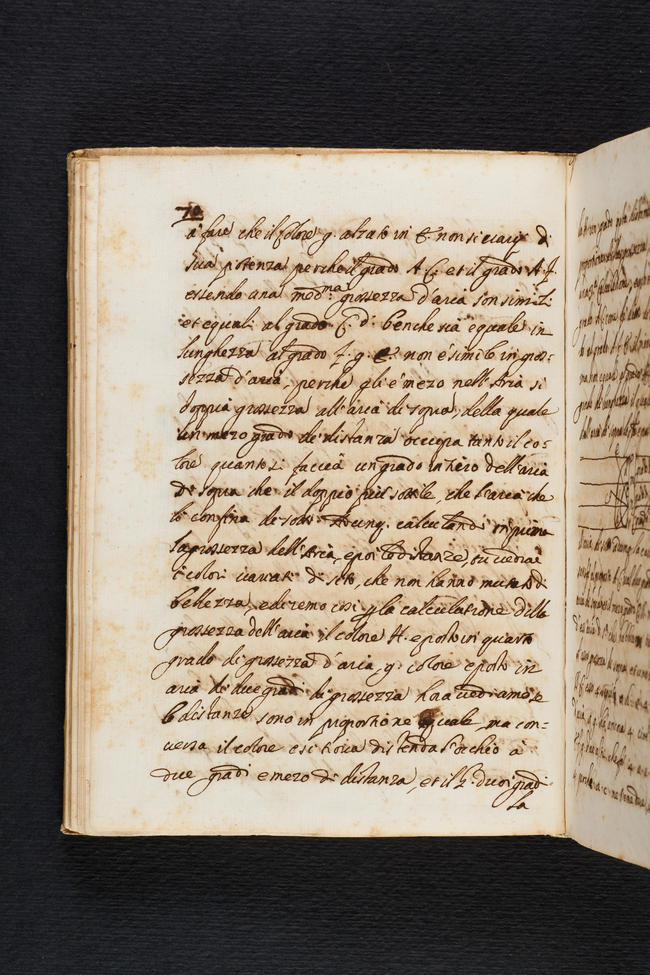 70
à fare che il colore g. alzato in E. non si varij di
sua potenza perche il grado A C. et il grado A f.
essendo una med.ma grossezza d'aria son simili
et equali al grado C. d. benche sia equale in
lunghezza al grado f. g. non é simile in gros:
sezza d'aria, perche gli é mezo nell'Aria di
doppia grossezza all'aria di sopra, della quale
un mezo grado di distanza occupa tanto il co=
lore quanto si faccia un grado intiero dell'aria
di sopra che il doppio più sottile, che l'aria che
le confina di sotto calculando in prima
la grossezza dell'Aria, e poi le distanze, tu vedrai
i colori variati di sito, che non hanno mutato di
bellezza, e diremo cosi p la calculatione della
grossezza dell'aria il colore H. e posto in quarto
grado di grossezza d'aria, g. colore e posto in
aria di due gradi di grossezza hora vediamo se
le distanze sono in proportione equale, ma con=
versa il colore e si trova distendato
due gradi e mezo di distanza, et il g. duoi gradi
la